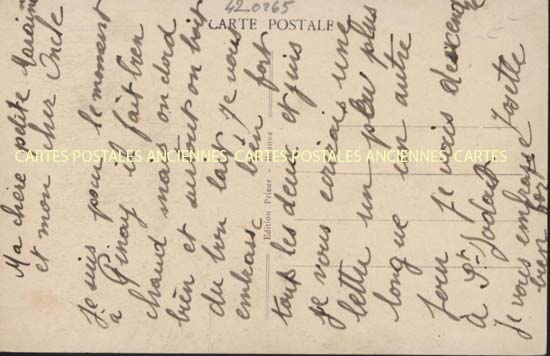 42.0265
CARTE POSTALE
Edition Prieur - Roanne
CARTES POSTALES ANCIENNES CARTES POSTALES ANCIENNES CARTES POSTALES ANCIENNES
Ma chère petite Marraine
et mon cher Oncle
je suis pour le moment
à Pinay il fait bien
chaud mais on dord
bien et surtout on boit
du bon lait je vous
embrasse bien fort
tous les deux et puis
je vous ecrirais une
lettre un peu plus
longue un autre
jour je vous descends
à St Jodard
je vous embrasse
bien fort